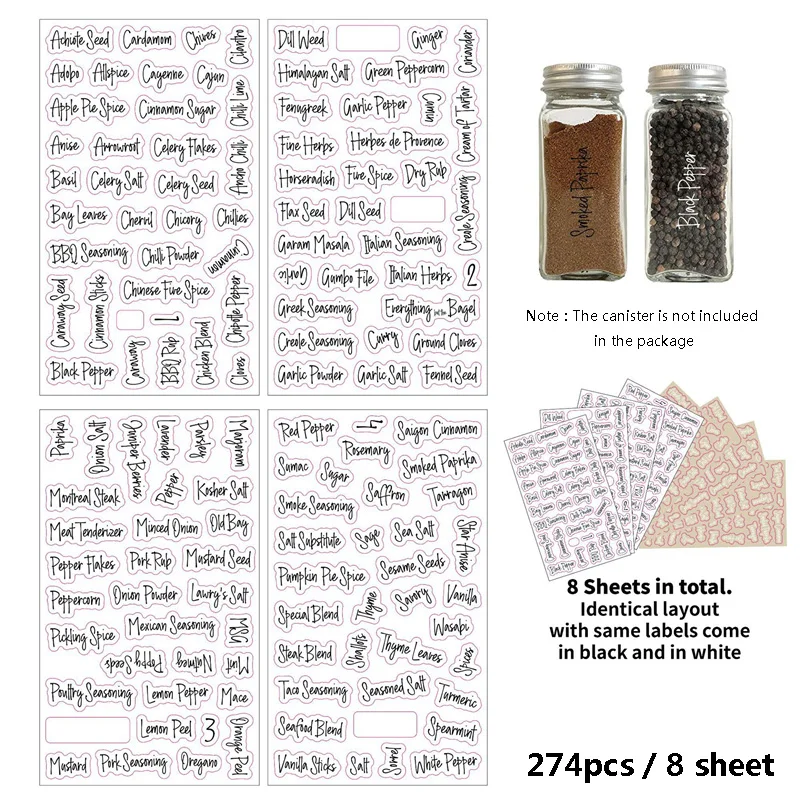 Achiote Seed
Cardamom
Chives
Cilantro
Adobo
Allspice
Cayenne
Cajun
Apple Pie Spice
Cinnamon Sugar
Chili Lime
Anise
Arrowroot
Celery Flakes
Ancho Chili
Basil
Celery Salt
Celery Seed
Bay Leaves
Chervil
Chicory
Chilies
BBQ Seasoning
Chili Powder
Cinnamon
Caraway Seed
Cinnamon Sticks
Chinese Five Spice
Chipotle Pepper
1
Black Pepper
Caraway
BBQ Rub
Chicken Blend
Cloves
Dill Weed
Ginger
Coriander
Himalayan Salt
Green Peppercorn
Fenugreek
Garlic Pepper
Cumin
Cream of Tartar
Fine Herbs
Herbes de Provence
Horseradish
Five Spice
Dry Rub
Flax Seed
Dill Seed
Creole Seasoning
Garam Masala
Italian Seasoning
Garlic
Gumbo File
Italian Herbs
2
Greek Seasoning
Everything but the Bagel
Creole Seasoning
Curry
Ground Cloves
Garlic Powder
Garlic Salt
Fennel Seed
Paprika
Onion Salt
Juniper Berries
Lavender
Parsley
Marjoram
Montreal Steak
Pepper
Kosher Salt
Meat Tenderizer
Minced Onion
Old Bay
Pepper Flakes
Pork Rub
Mustard Seed
Peppercorn
Onion Powder
Lawry's Salt
Pickling Spice
Mexican Seasoning
MSG
Poppy Seeds
Nutmeg
Mint
Poultry Seasoning
Lemon Pepper
Mace
Lemon Peel
3
Orange Peel
Mustard
Pork Seasoning
Oregano
Red Pepper
4
Saigon Cinnamon
Rosemary
Sumac
Sugar
Smoked Paprika
Smoke Seasoning
Saffron
Tarragon
Salt Substitute
Sage
Sea Salt
Star Anise
Pumpkin Pie Spice
Sesame Seeds
Special Blend
Thyme
Savory
Vanilla
Wasabi
Steak Blend
Shallots
Thyme Leaves
Spices
Taco Seasoning
Seasoned Salt
Turmeric
Seafood Blend
Spearmint
Vanilla Sticks
Salt
Sorrel
White Pepper
Smoked Paprika
Black Pepper
Note : The canister is not included
in the package
8 Sheets in total.
Identical layout
with same labels come
in black and in white
274pcs / 8 sheet